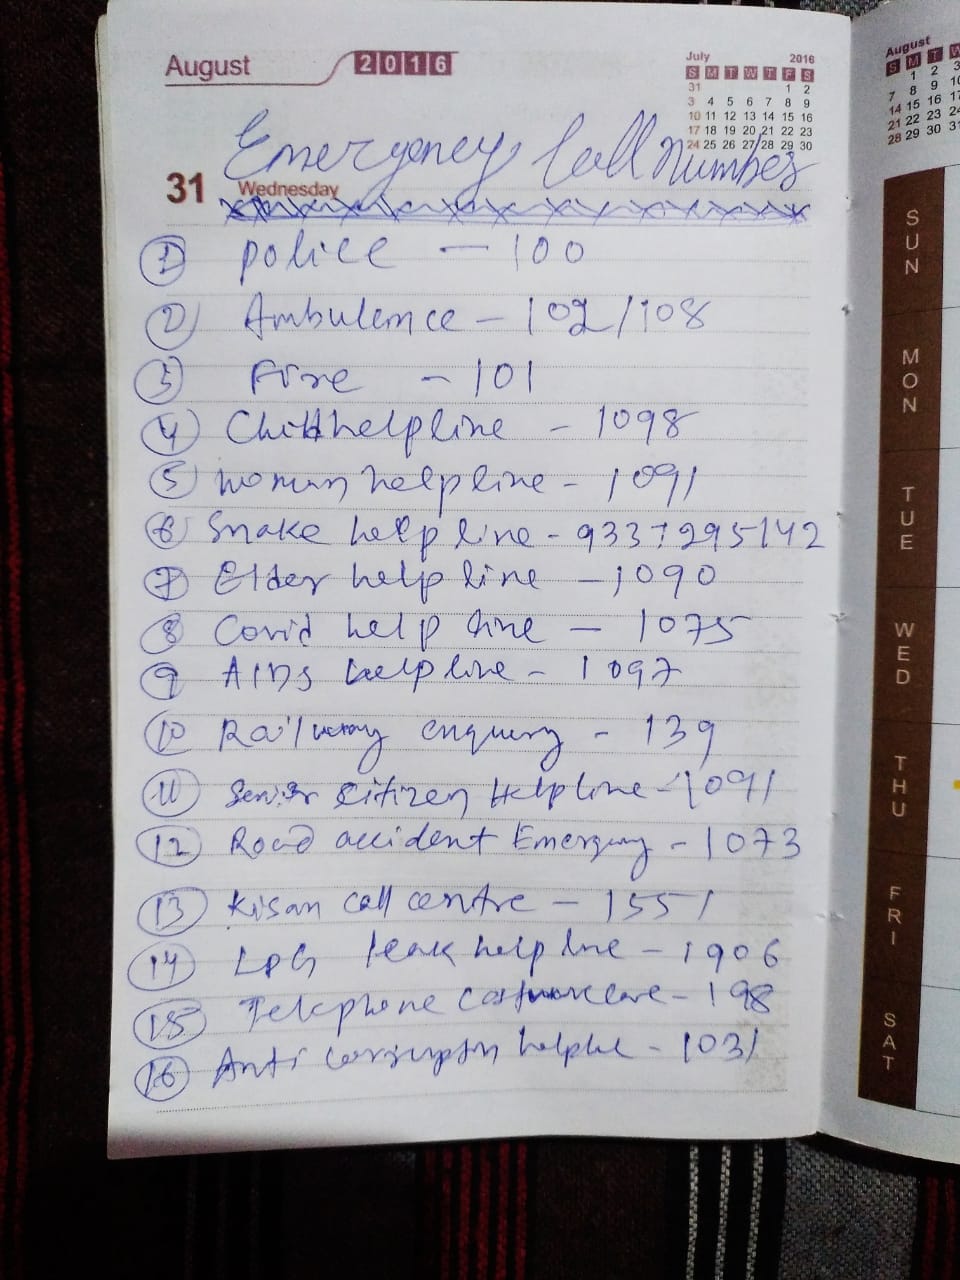 August 2016
July 2016
S M T W T F S
31 1 2
3 4 5 6 7 8 9
10 11 12 13 14 15 16
17 18 19 20 21 22 23
24 25 26 27 28 29 30
Emergency Call number
31 Wednesday
1 police - 100
2 Ambulence - 102/108
3 Fire - 101
4 Child helpline - 1098
5 woman helpline - 1091
6 Snake help line - 9337295142
7 Elder help line - 1090
8 Covid help line - 1075
9 AIDS help line - 1097
10 Railway enquery - 139
11 Senior Citizen Helpline - 1091
12 Road accident Emergency - 1073
13 Kisan call centre - 1551
14 LPG leak help line - 1906
15 Telephone - 198
16 Anti - 1031
August
S M T W
1 2 3
7 8 9 10
14 15 16 17
21 22 23 24
28 29 30 31
SUN
MON
TUE
WED
THU
FRI
SAT